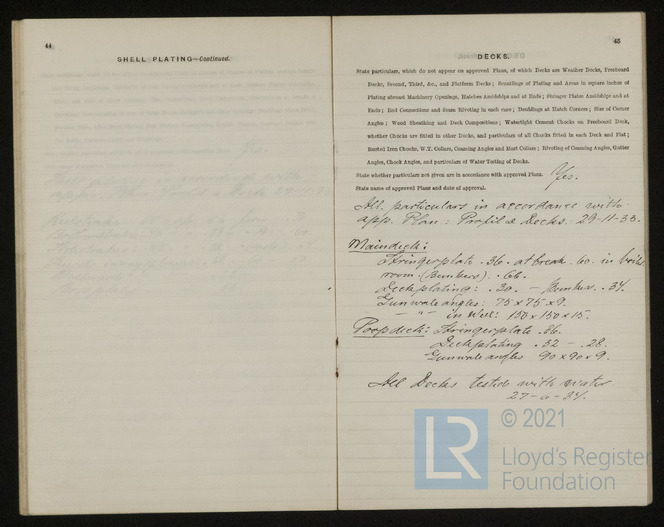 44
SHELL PLATING—Continued.
45
DECKS.
State particulars, which do not appear on approved Plans, of which Decks are Weather Decks, Freeboard
Decks, Second, Third, &c., and Platform Decks; Scantlings of Plating and Areas in square inches of
Plating abreast Machinery Openings, Hatches Amidships and at Ends; Stringer Plates Amidships and at
Ends; End Connections and Seam Riveting in each case; Doublings at Hatch Corners; Size of Corner
Angles; Wood Sheathing and Deck Compositions; Watertight Cement Chocks on Freeboard Deck,
whether Chocks are fitted in other Decks, and particulars of all Chocks fitted in each Deck and Flat;
Rusted Iron Chocks, W.T. Collars, Coaming Angles and Mast Collars; Riveting of Coaming Angles, Gutter
Angles, Chock Angles, and particulars of Water Testing of Decks.
State whether particulars not given are in accordance with approved Plans. Yes.
State name of approved Plans and date of approval.
All particulars in accordance with
app. Plan: Profil & Decks. 29-11-33.
Maindeck:
Stringerplate .36. at break .60. in boiler
room (Bunkers) .66.
Deckplating: .30. — Bunkers. .34.
Gunwale angles: 75 x 75 x 9.
— " — in Well: 150 x 150 x 15.
Poopdeck: Stringerplate .36.
Deckplating .32 — .28.
Gunwale angles 90 x 90 x 9.
All Decks tested with water
27-6-34.
© 2021
LR
Lloyd's Register
Foundation